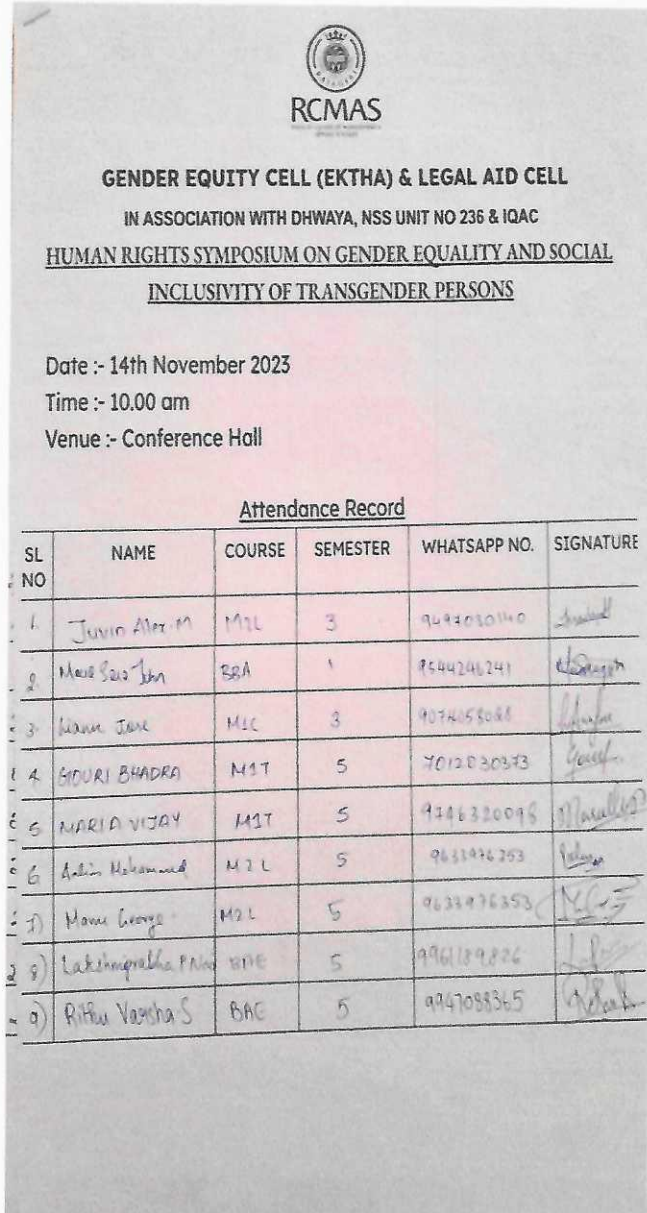 RAJAGIRI
RCMAS
GENDER EQUITY CELL (EKTHA) & LEGAL AID CELL
IN ASSOCIATION WITH DHWAYA, NSS UNIT NO 236 & IQAC
HUMAN RIGHTS SYMPOSIUM ON GENDER EQUALITY AND SOCIAL
INCLUSIVITY OF TRANSGENDER PERSONS
Date :- 14th November 2023
Time :- 10.00 am
Venue :- Conference Hall
Attendance Record
SL NO NAME COURSE SEMESTER WHATSAPP NO. SIGNATURE
1. Juvin Alex M M2L 3
2. BBA 1 9544246241
3. Jose M1C 3
4 GOURI BHADRA M1T 5 7012030373
5 MARIA VIJAY M1T 5 9746320098
6 M2L 5
7) Manu George M2L 5 9633976353
8) Lakshmiprabha P BAE 5 9961189826
9) Rithu Varsha S BAE 5 9947088365